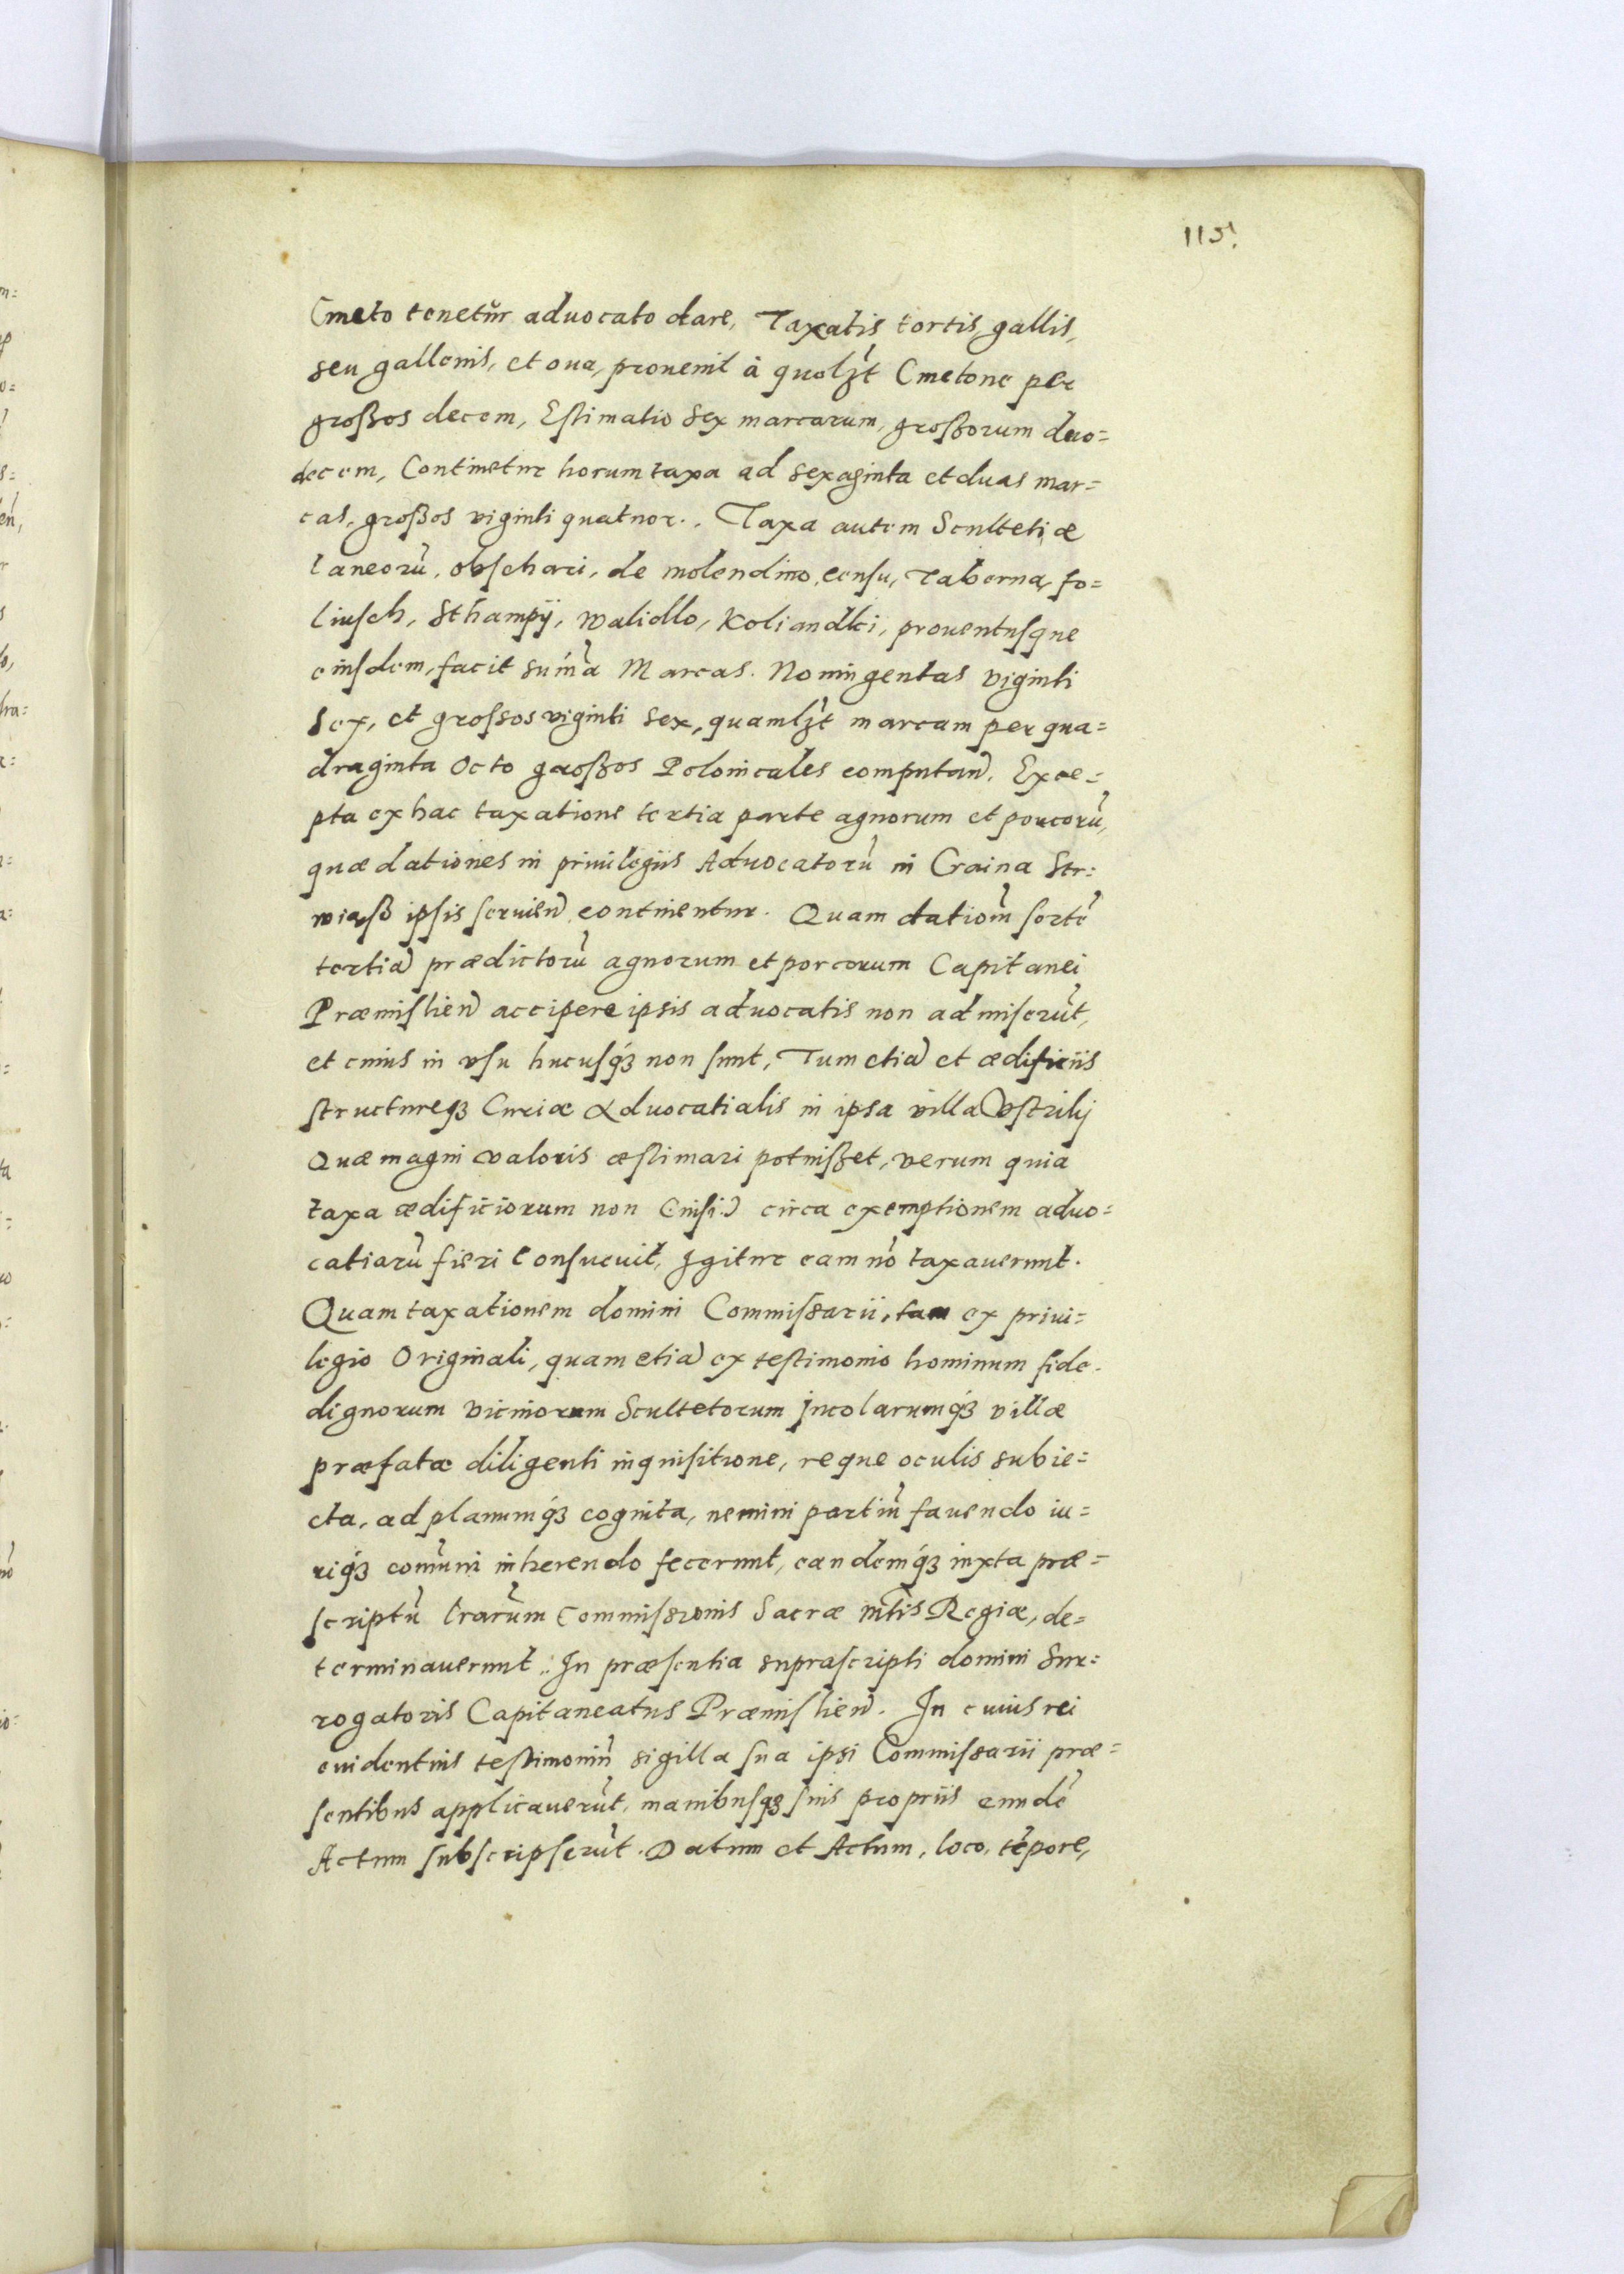 115.
Cmeto tenetur advocato dare, Taxatis tortis, gallis,
seu gallenis, et oua, prouenit à quolʒt Cmetone per
großos decem, Estimatio sex marcarum, großorum duo=
decem, Continetur horum taxa ad sexaginta et duas mar=
cas, großos viginti quatuor. Taxa autem Scultetiæ
laneorũ, obschari, de molendino, censu, Taberna, fo=
liusch, Sthampij, walidlo, Koliandki, prouentusque
eiusdem, facit sum̃a Marcas. Noningentas viginti
sex, et grossos viginti sex, quamlʒt marcam per qua=
draginta Octo großos Polonicales computañ. Exce=
pta ex hac taxatione tertia parte agnorum et porcorũ,
quæ dationes in priuilegiis Advocatorũ in Craina Str:
wiaß ipsis servieñ continentur. Quam dationẽ sortẽ
tertiã prædictorũ agnorum et porcorum Capitanei
Præmislieñ accipere ipsis advocatis non admiserũt,
et cuius in vsu hucusqʒ non sunt, Tum etiã et ædificiis
structureqʒ Curiæ Aduocatialis in ipsa villa Vstrilij
Quæ magni valoris æstimari potuißet, verum quia
taxa ædificiorum non (nisi) circa exemptionem aduo=
catiarũ fieri Consueuit, Igitur eam nõ taxauerunt.
Quam taxationem domini Commissarii, tam ex priui=
legio Originali, quam etiã ex testimonio hominum fide
dignorum vicinorum Scultetorum Incolarumqʒ villæ
præfatæ diligenti inquisitione, reque oculis subie=
cta, ad planumqʒ cognita, nemini partiũ fauendo iu=
riqʒ com̃uni inherendo fecerunt, eandemqʒ iuxta præ=
scriptũ lrarũm Commissionis Sacræ Mtis Regiæ, de=
terminauerunt. In præsentia suprascripti domini Sur=
rogatoris Capitaneatus Præmislieñ. In cuius rei
euidentius testimoniũ sigilla sua ipsi Commissarii præ=
sentibus applicauerũt, manibusqʒ suis propriis eundẽ
Actum subscripserũt. Datum et Actum, loco, tẽpore,